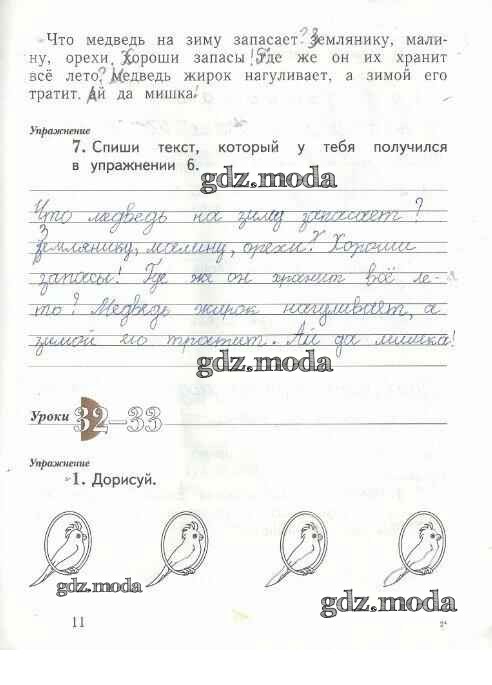 Что медведь на зиму запасает? Землянику, мали-
ну, орехи. Хороши запасы! Где же он их хранит
всё лето? Медведь жирок нагуливает, а зимой его
тратит. Ай да мишка!
Упражнение
7. Спиши текст, который у тебя получился
в упражнении 6.
gdz.moda
Что медведь на зиму запасает?
Землянику, малину, орехи? Хороши
запасы! Где же он хранит всё ле-
то? Медведь жирок нагуливает, а
зимой его тратит. Ай да мишка!
gdz.moda
Уроки 32–33
Упражнение
1. Дорисуй.
gdz.moda
gdz.moda
11
2*